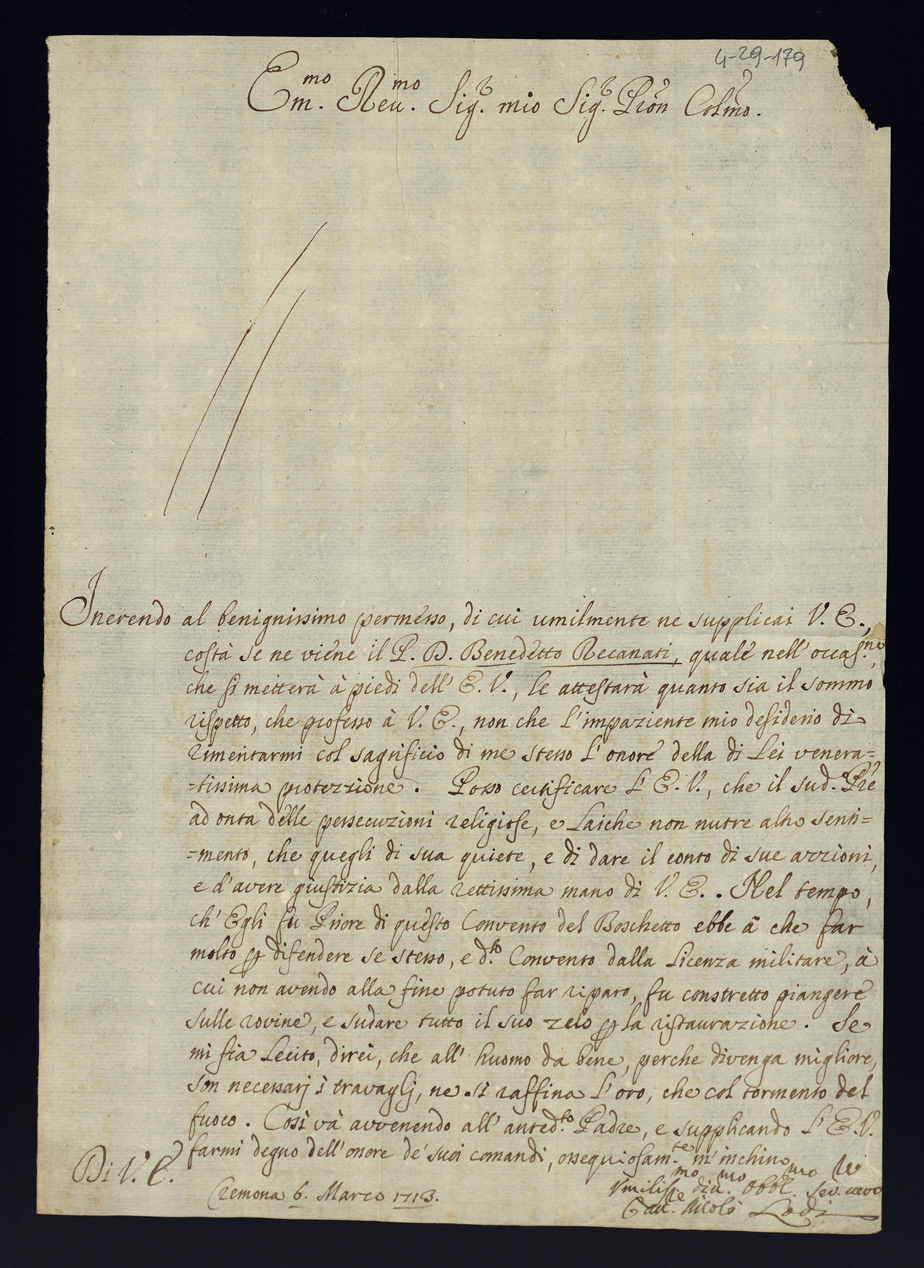 4-29-179
Em.mo Reu.mo Sig.r mio Sig.r Pron Colmo.
Inerendo al benignissimo permesso, di cui umilmente ne supplicai V. E.,
costà se ne viene il P. D. Benedetto Recanati, quale nell'occas.ne,
che si metterà à piedi dell'E. V., le attestarà quanto sia il sommo
rispetto, che professo à V. E., non che l'impaziente mio desiderio di
rimentarmi col sagrificio di me stesso l'onore della di Lei venera=
=tissima protezzione. Posso certificare l'E. V., che il sud.o Pre
ad onta delle persecuzioni religiose, e laiche non nutre altro senti=
=mento, che quegli di sua quiete, e di dare il conto di sue azzioni,
e d'avere giustizia dalla rettissima mano di V. E.. Nel tempo,
ch'Egli fu Priore di questo Convento del Boschetto ebbe à che far
molto p difendere se stesso, e d.to Convento dalla Licenza militare, à
cui non avendo alla fine potuto far riparo, fu constretto piangere
sulle rovine, e sudare tutto il suo zelo p la ristaurazione. Se
mi sia lecito, direi, che all'huomo da bene, perche divenga migliore,
son necessarj i travaglj, ne si raffina l'oro, che col tormento del
fuoco. Così và avvenendo all'anted.to Padre, e supplicando l'E. V.
farmi degno dell'onore de' suoi comandi, ossequiosam.te m'inchino
Di V. E.
Cremona 6. Marzo 1713.
Vmilis.mo diu.mo obbl.mo Ser.
Cau.re Nicolò Lodi